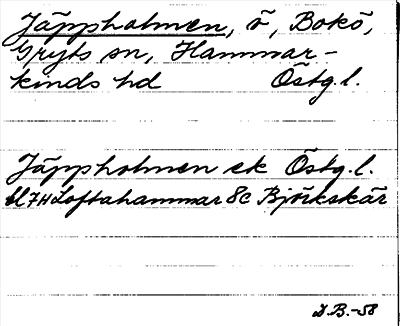 Jäppholmen, ö, Bokö,
Gryts sn, Hammar-
kinds hd Östg.l.
Jäppholmen ek Östg.l.
bl 7H Loftahammar 8c Björkskär
D.B.-58